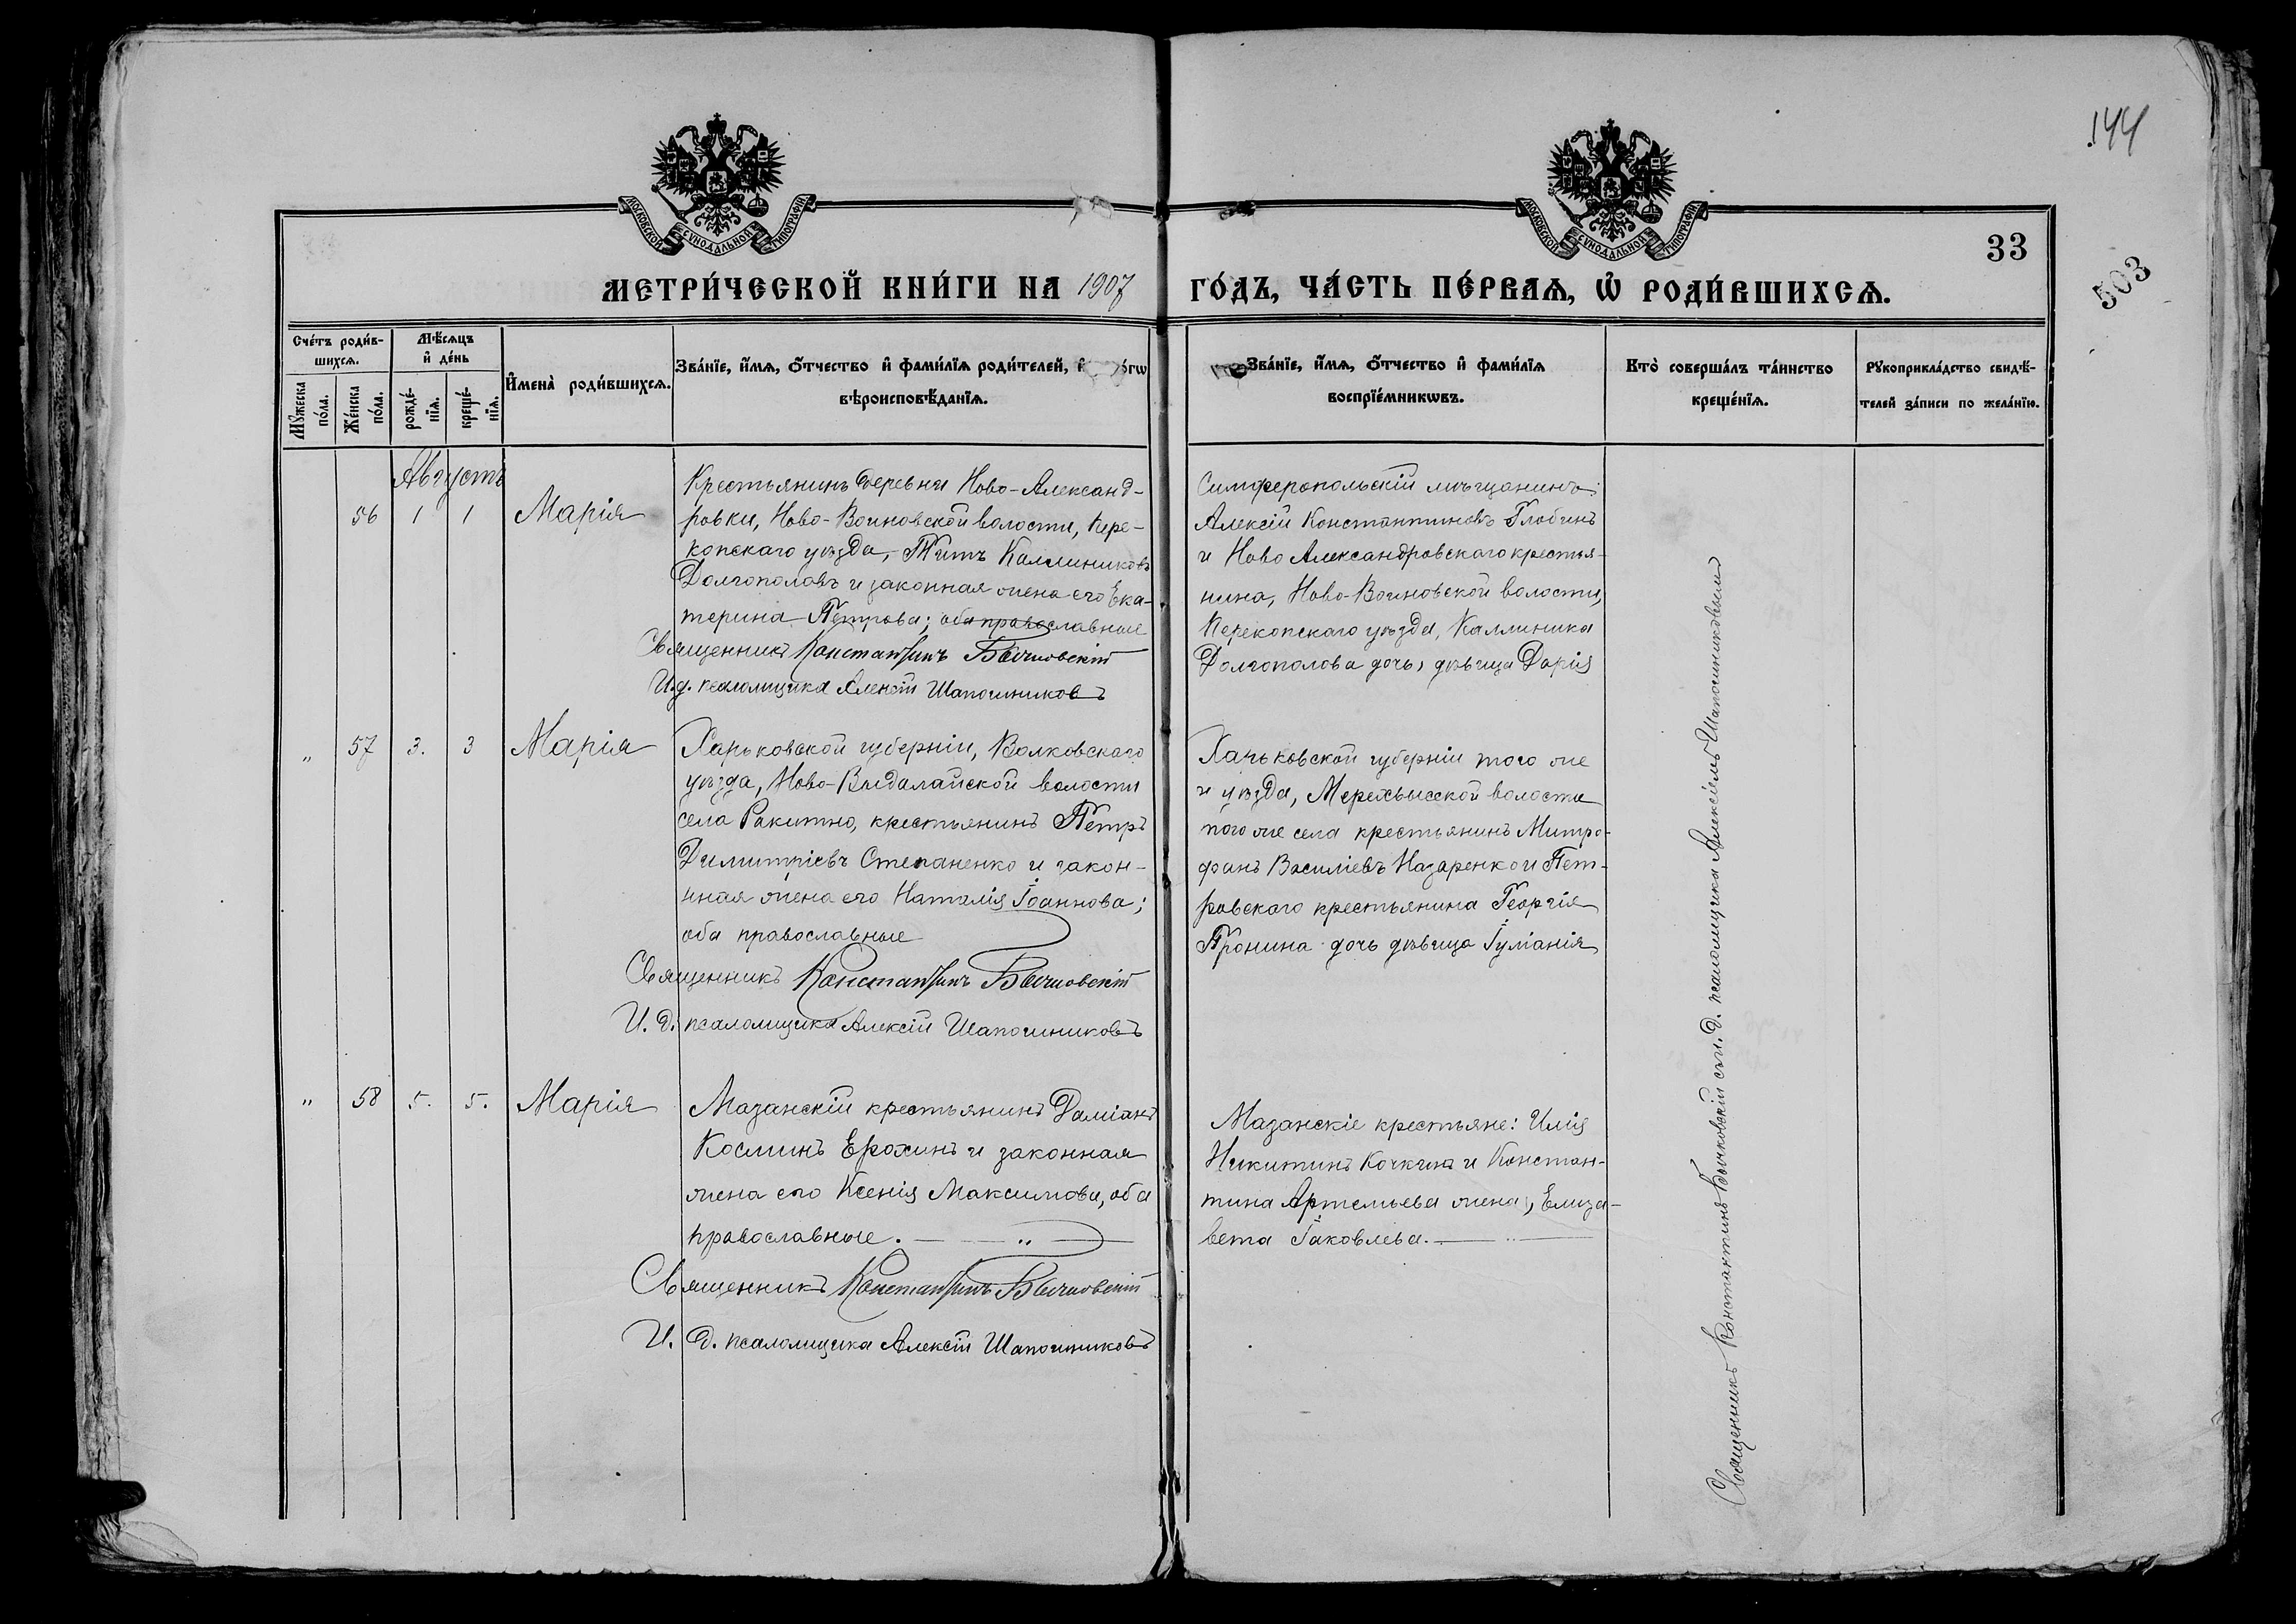 144
МОСКОВСКОЙ СѴНОДАЛЬНОЙ ТИПОГРАФІИ
МОСКОВСКОЙ СѴНОДАЛЬНОЙ ТИПОГРАФІИ
33
503
МЕТРИ́ЧЕСКОЙ КНИ́ГИ НА 1907 ГО́ДЪ, ЧА́СТЬ ПЕ́РВАѦ, Ѡ҆ РОДИ́ВШИХСѦ.
Сче́тъ роди́в-
шихсѧ.
Мꙋ́жеска
по́ла.
Же́нска
по́ла.
Мѣ́сѧцъ
и҆ де́нь
рожде́-
нїѧ.
креще́-
нїѧ.
И҆мена̀ роди́вшихсѧ.
Зва́нїе, и҆́мѧ, ѻ҆́тчество и҆ фами́лїѧ роди́телей, и҆
вѣроисповѣ́данїѧ.
Зва́нїе, и҆́мѧ, ѻ҆́тчество и҆ фами́лїѧ
воспрїе́мникѡвъ.
Кто̀ соверша́лъ та́инство
креще́нїѧ.
Рꙋкоприкла́дство свидѣ́-
телей за́писи по жела́нїю.
Августъ
56 1 1 Марія
Крестьянинъ деревни Ново-Александ-
ровки, Ново-Воиновской волости, Пере-
копскаго уѣзда, Титъ Каллиниковъ
Долгополовъ и законная жена его Ека-
терина Петрова; оба православные
Священникъ Константинъ Бычковскій
И.д. псаломщика Алексій Шапошниковъ
Симферопольскій мѣщанинъ:
Алексій Константиновъ Глобинъ
и Ново Александровскаго крестья-
нина, Ново-Воиновской волости,
Перекопскаго уѣзда, Каллиника
Долгополова дочь, дѣвица Дарія
" 57 3. 3 Марія
Харьковской губерніи, Волковскаго
уѣзда, Ново-Выдалайской волости
села Ракитно, крестьянинъ Петръ
Димитріевъ Степаненко и закон-
нная жена его Наталія Іоаннова;
оба православные
Священникъ Константинъ Бычковскій
И. д. псаломщика Алексій Шапошниковъ
Харьковской губерніи того же
и уѣзда, волости
того же села крестьянинъ Митро-
фанъ Василіевъ Назаренко и Пет-
ровскаго крестьянина Георгія
Пронина дочь дѣвица Іуліанія
" 58 5. 5. Марія
Мазанскій крестьянинъ Даміанъ
Косминъ Ерохинъ и законная
жена его Ксенія Максимова, оба
православные. — " —
Священникъ Константинъ Бычковскій
И. д. псаломщика Алексій Шапошниковъ
Мазанскіе крестьяне: Илія
Никитинъ Кочкинъ и Констан-
тина Артемьева жена, Елиза-
вета Іаковлева. — " —
Священникъ Константинъ Бычковскій съ и. д. псаломщика Алексіемъ Шапошниковымъ